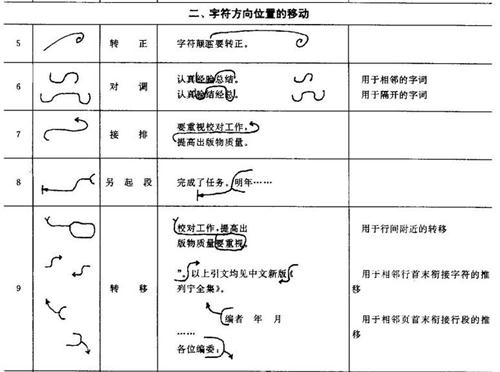 二、字符方向位置的移动
5 转正 字符颠 要转正。
6 对调 认真经验总结。 用于相邻的字词
认真验结经总。 用于隔开的字词
7 接排 要重视校对工作,
提高出版物质量。
8 另起段 完成了任务。明年……
9 转移 校对工作,提高出 用于行间附近的转移
版物质量要重视。
"。以上引文均见中文新版《 用于相邻行首末衔接字符的推
列宁全集》。 移
编者 年 月 用于相邻页首末衔接行段的推
…… 移
各位编委: